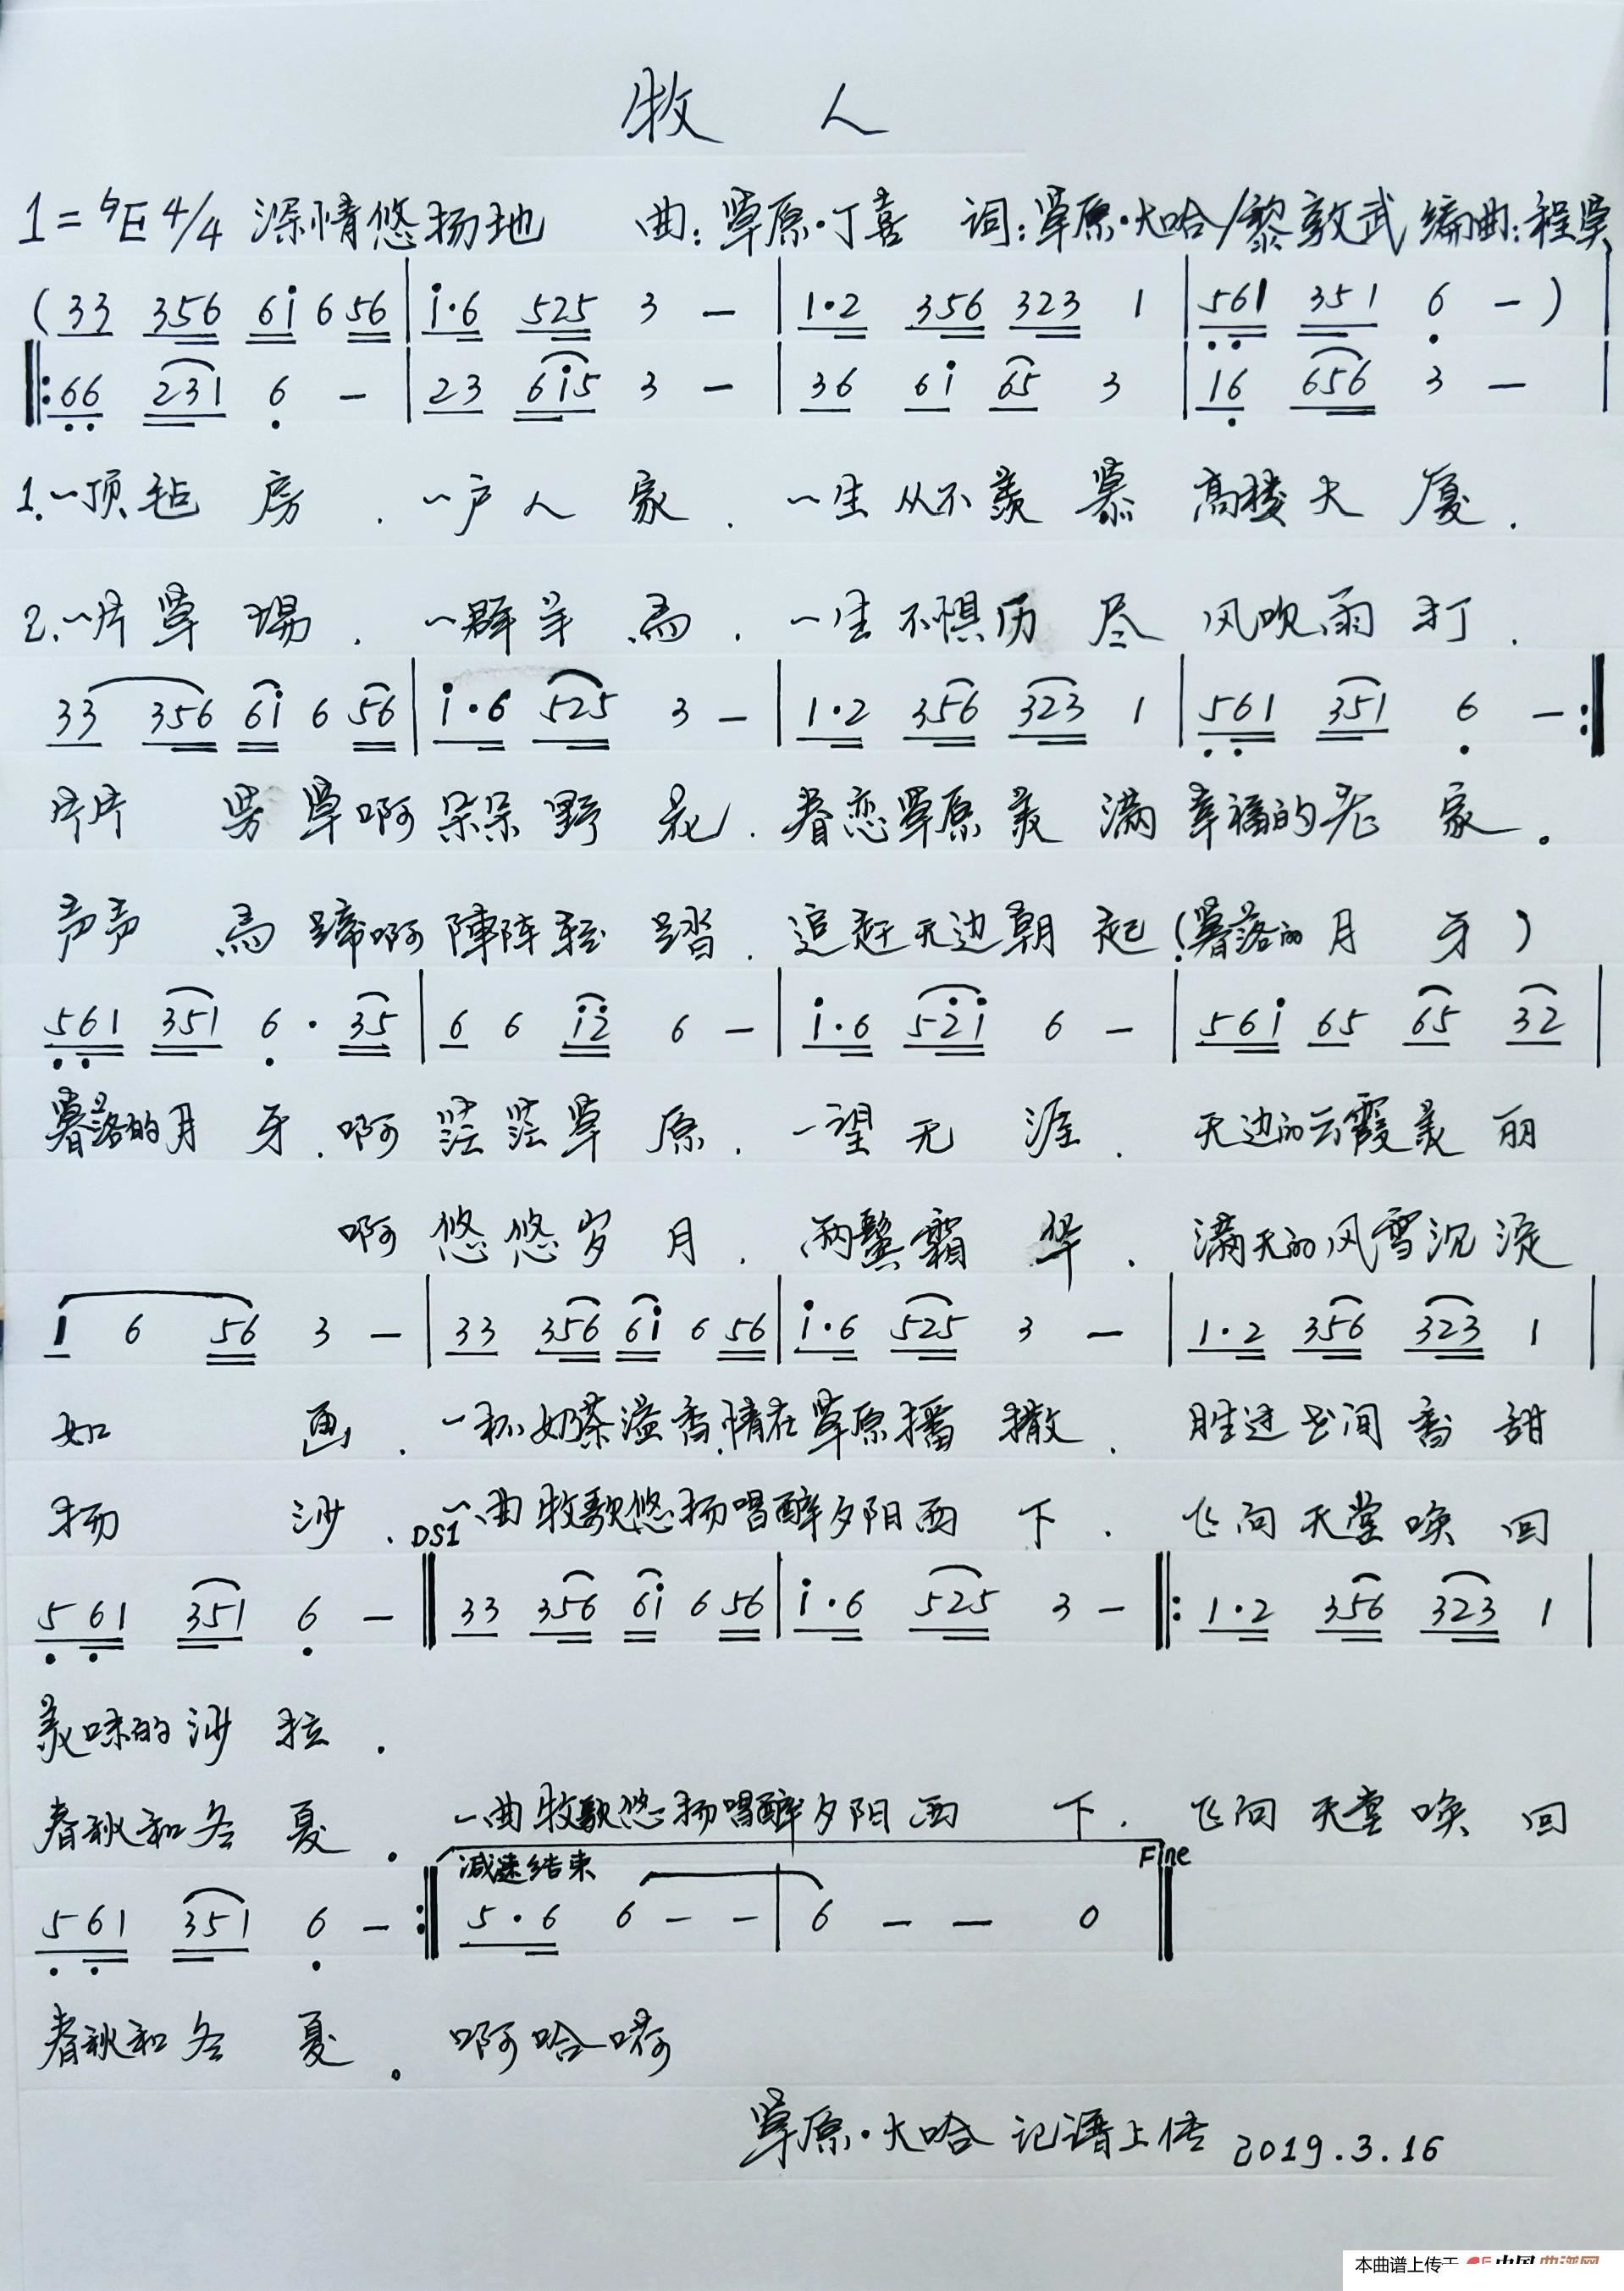 牧 人
1=♮E 4/4 深情悠扬地 曲:草原·丁喜 词:草原·大哈/黎敦武 编曲:程昊
(33 356 6i 6 56 | i·6 525 3 — | 1·2 356 323 1 | 561 351 6 — ) |
‖: 66 231 6 — | 23 6i5 3 — | 36 6i 65 3 | 16 656 3 — |
1.一顶毡房.一户人家.一生从不羡慕高楼大厦.
2.一片草场.一群羊馬.一生不惧历尽风吹雨打.
33 356 6i 6 56 | i·6 525 3 — | 1·2 356 323 1 | 561 351 6 — :‖
片片 芳草啊朵朵野花.眷恋草原美满幸福的老家。
声声 馬蹄啊陣阵轻踏.追赶无边朝起(暮落的月牙)
561 351 6· 35 | 6 6 i2 6 — | i·6 52i 6 — | 56i 65 65 32 |
暮落的月牙.啊茫茫草原.一望无涯.天边的云霞美丽
啊悠悠岁月.两鬓霜华.满天的风雪沉淀
i 6 56 3 — | 33 356 6i 6 56 | i·6 525 3 — | 1·2 356 323 1 |
如 画.一杯奶茶溢香.情在草原播撒.胜过世间香甜
扬 沙.DS1 一曲牧歌悠扬唱醉夕阳西下.飞向天堂唤回
561 351 6 — ‖ 33 356 6i 6 56 | i·6 525 3 — ‖: 1·2 356 323 1 |
美味的沙拉.
春秋和冬夏。一曲牧歌悠扬唱醉夕阳西下.飞向天堂唤回
减速结束 Fine
561 351 6 — :‖ 5·6 6 — — | 6 — — 0 ‖
春秋和冬夏。啊哈嗬
草原·大哈 记谱上传 2019.3.16
本曲谱上传于 中国曲谱网